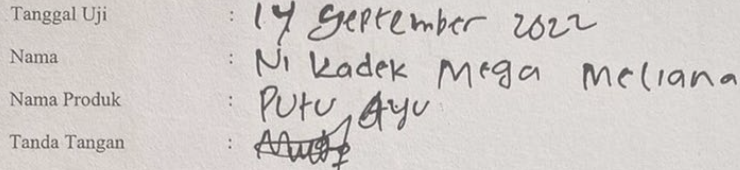 Tanggal Uji : 14 September 2022
Nama : Ni Kadek Mega Meliana
Nama Produk : Putu Ayu
Tanda Tangan :